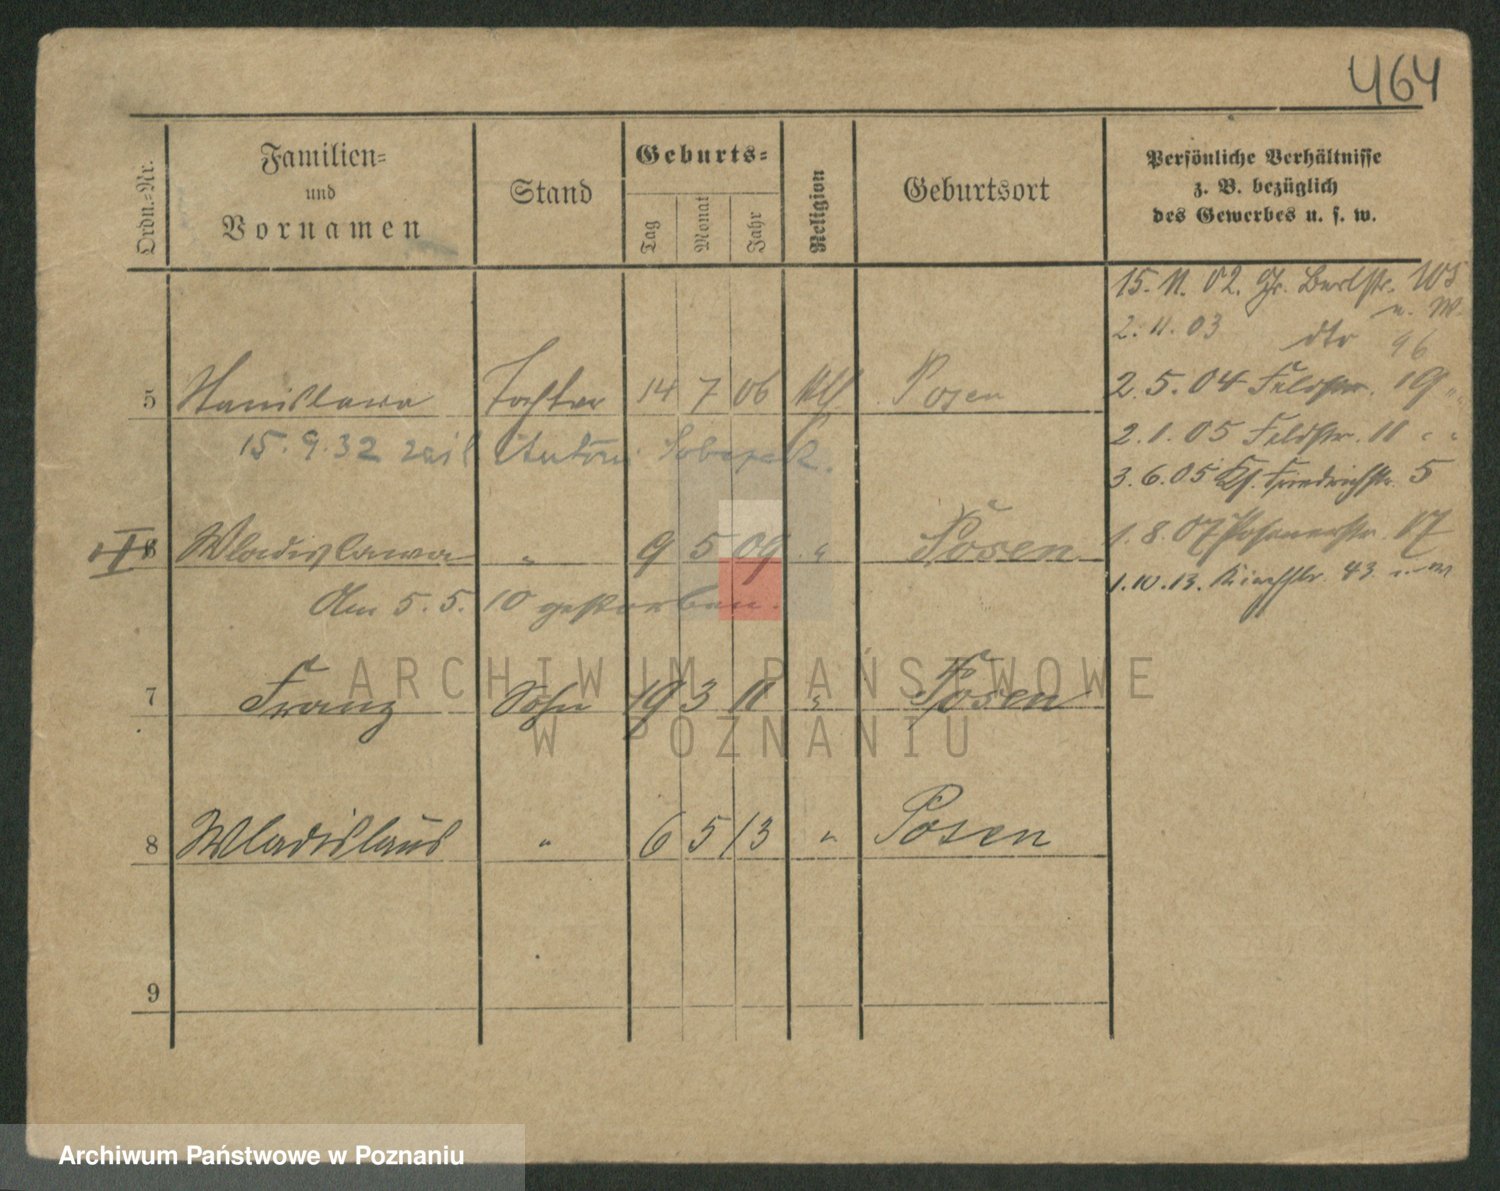 464
Ordn.-Nr.
Familien- und Vornamen
Stand
Geburts-
Tag Monat Jahr
Religion
Geburtsort
Persönliche Verhältnisse
z. B. bezüglich
des Gewerbes u. s. w.
15. 11. 02. Gr. Berlstr. 105
u. W.
2. 11. 03 dto 96
5 Stanislawa Tochter 14 7 06 Posen
2. 5. 04 Feldstr. 19 "
15. 9. 32 Antoni
2. 1. 05 Feldstr. 11 "
3. 6. 05 Kf. Friedrichstr. 5
6 Wladislawa " 9 5 09 " Posen
1. 8. 07 Posenerstr. 17
Am 5. 5. 10 gestorben.
1. 10. 13. 43
7 Franz Sohn 19 3 11 " Posen
8 Wladislaus " 6 5 13 " Posen
9
ARCHIWUM PAŃSTWOWE
W POZNANIU
Archiwum Państwowe w Poznaniu